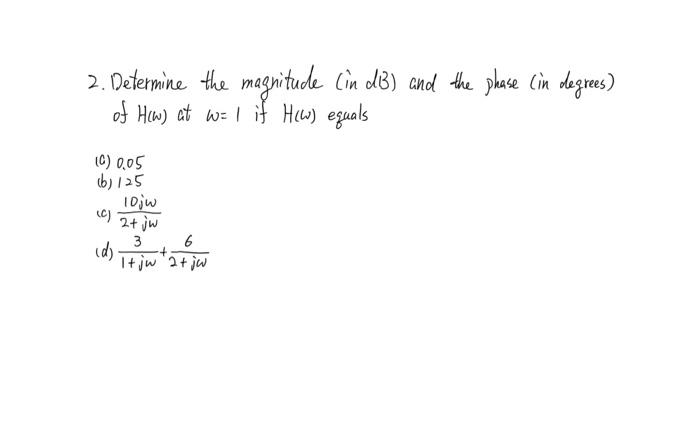 2. Determine the magnitude (in dB) and the phase (in degrees)
of H(w) at w= 1 if H(w) equals
(a) 0.05
(b) 125
(c) 10jw / 2+ jw
(d) 3 / 1+ jw + 6 / 2+ jw